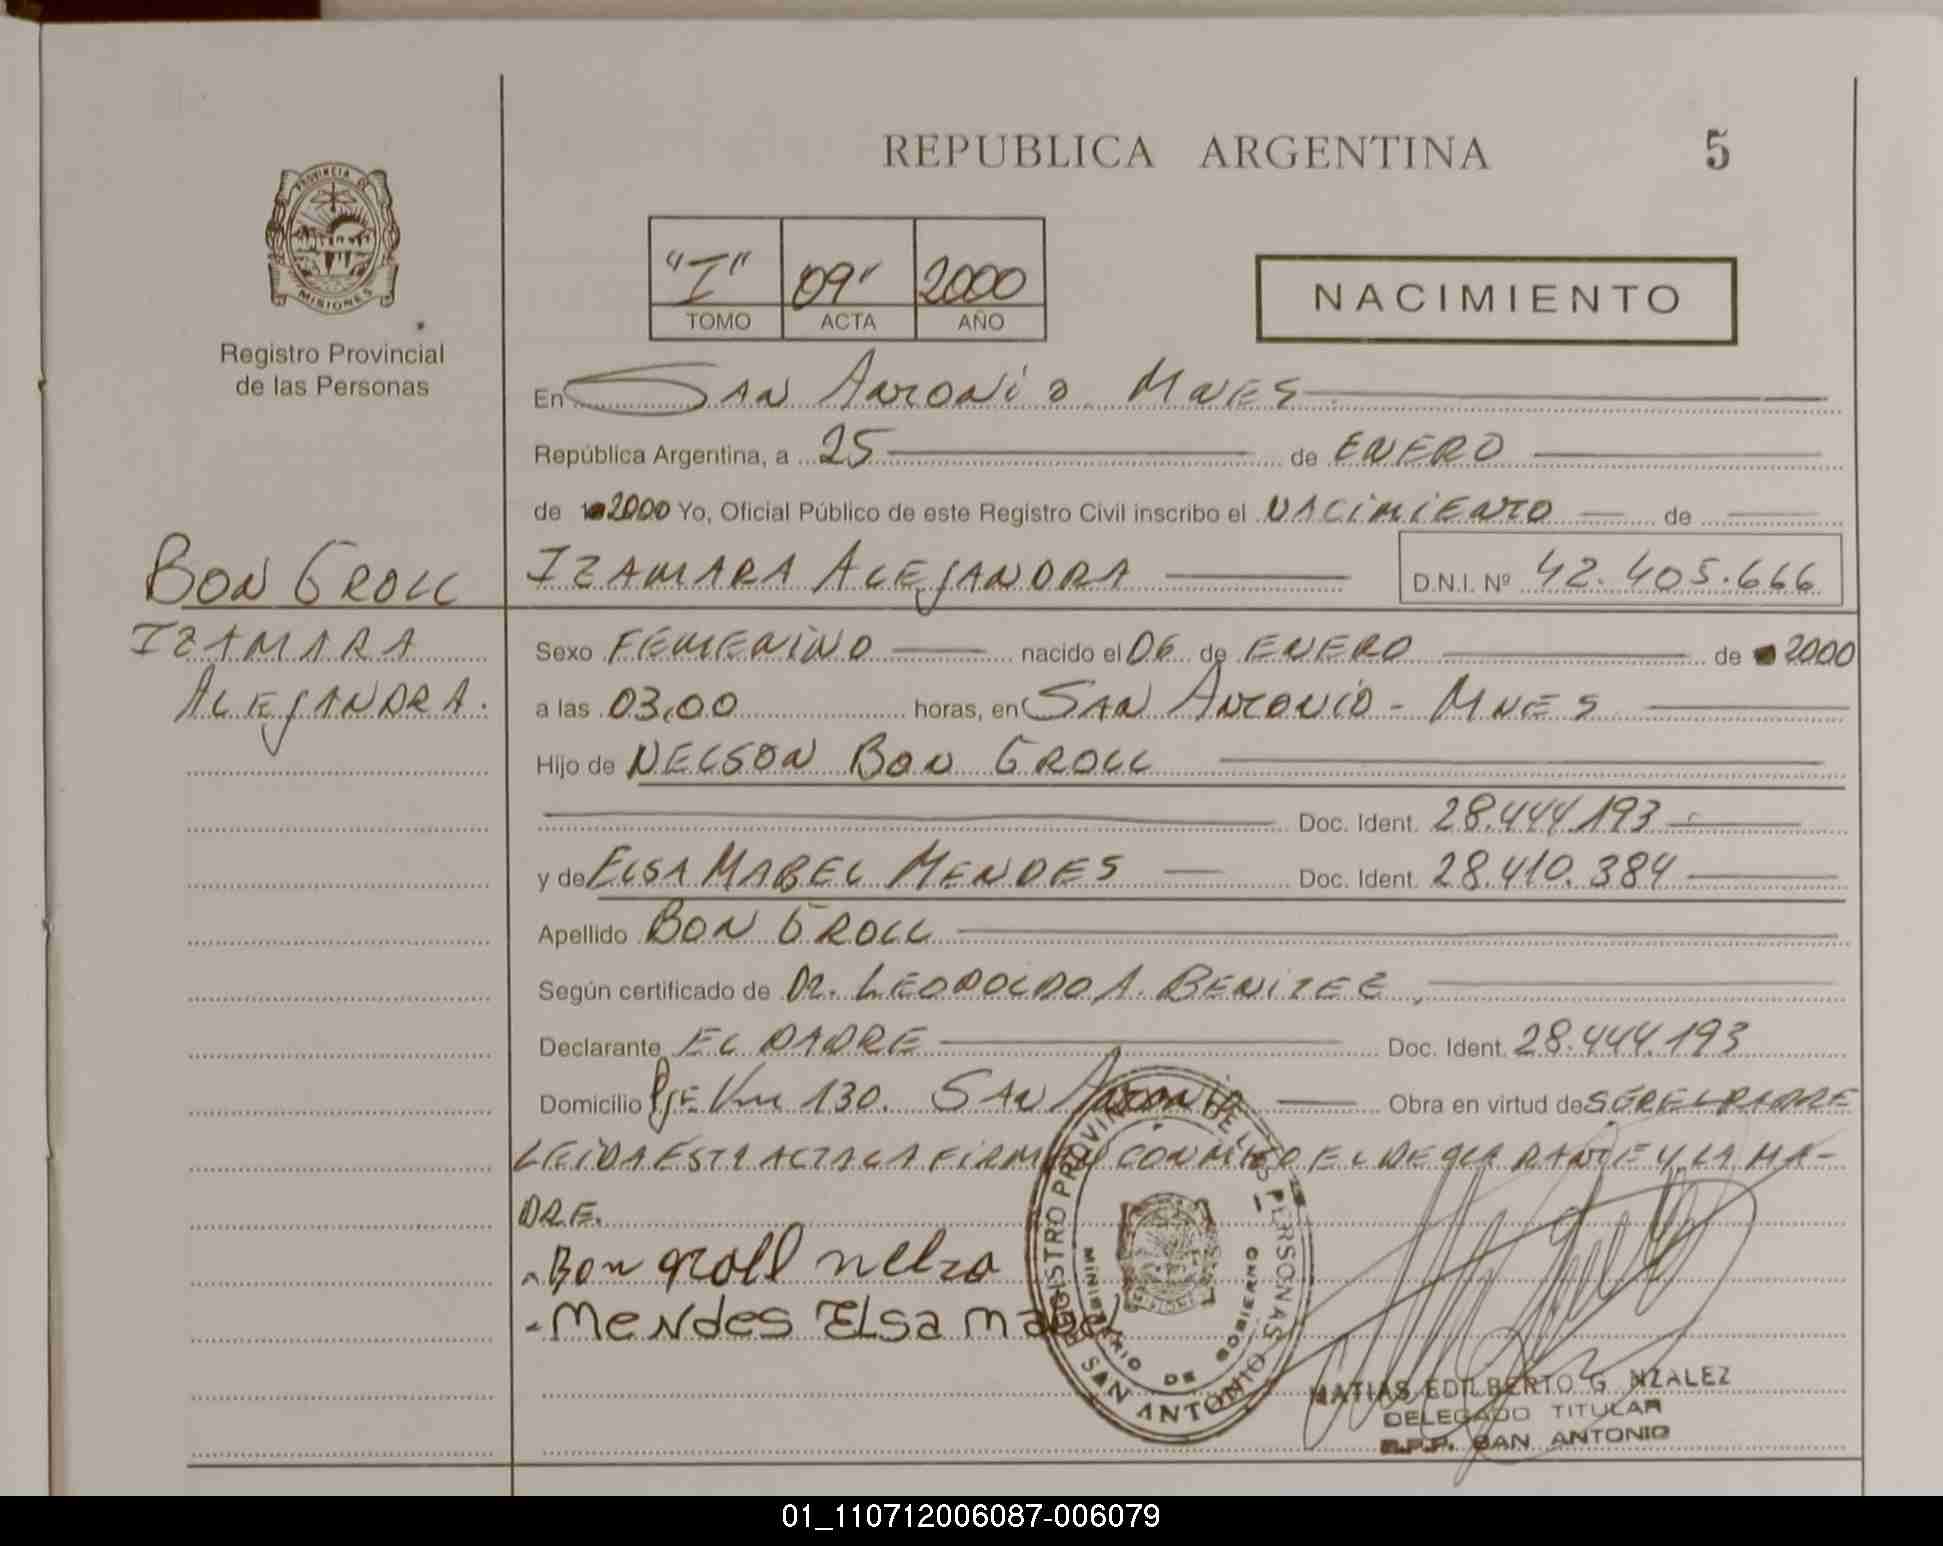 REPUBLICA ARGENTINA
5
PROVINCIA DE
MISIONES
Registro Provincial
de las Personas
"I" 09' 2000
TOMO ACTA AÑO
NACIMIENTO
En SAN ANTONIO MNES
República Argentina, a 25 de ENERO
de 2000 Yo, Oficial Público de este Registro Civil inscribo el NACIMIENTO de
IZAMARA ALEJANDRA D.N.I. Nº 42.405.666
BON GROLL
IZAMARA
ALEJANDRA.
Sexo FEMENINO nacido el 06 de ENERO de 2000
a las 03,00 horas, en SAN ANTONIO - MNES
Hijo de NELSON BON GROLL
Doc. Ident. 28.444.193
y de ELSA MABEL MENDES Doc. Ident. 28.410.384
Apellido BON GROLL
Según certificado de DR. LEOPOLDO A. BENITEZ,
Declarante EL PADRE Doc. Ident. 28.444.193
Domicilio PJE Km 130. SAN ANTONIO Obra en virtud de SER EL PADRE
LEIDA ESTA ACTA LA FIRMAN CONMIGO EL DECLARANTE Y LA MA-
DRE.
- Bon groll nelso
- Mendes Elsa Mabel
REGISTRO PROVINCIAL DE LAS PERSONAS
MINISTERIO DE GOBIERNO
SAN ANTONIO
MATIAS EDILBERTO G NZALEZ
DELEGADO TITULAR
R.P.P. SAN ANTONIO
01_110712006087-006079